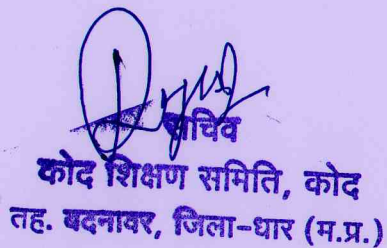 सचिव
कोद शिक्षण समिति, कोद
तह. बदनावर, जिला-धार (म.प्र.)